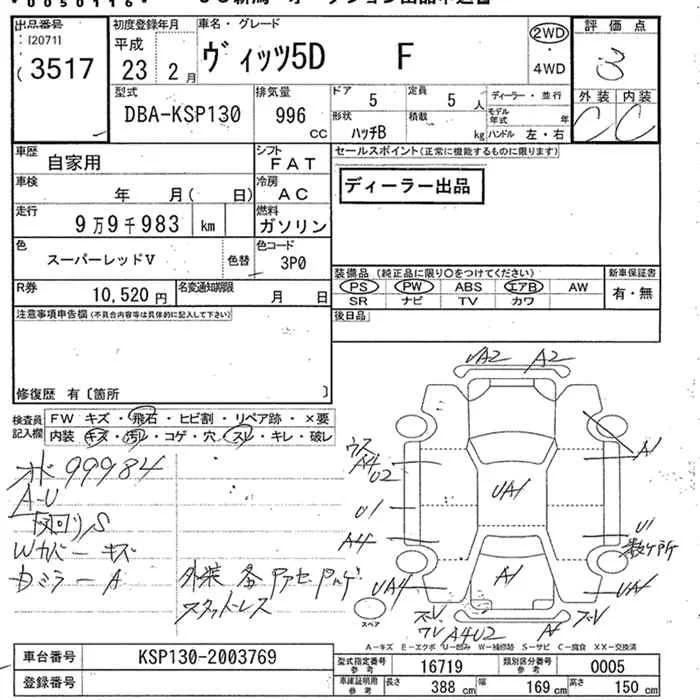 0050116
出品番号
I20711
3517
初度登録年月
平成
23 2月
車名・グレード
ヴィッツ5D F
2WD
・
4WD
評価点
3
型式
DBA-KSP130
排気量
996
CC
ドア
5
定員
5人
ディーラー・並行
形状
ハッチB
積載
kg
モデル年式 年
ハンドル 左・右
外装 内装
C C
車歴
自家用
シフト
FAT
セールスポイント(正常に機能するものに限ります)
ディーラー出品
車検
年 月( 日)
冷房
AC
走行
9万9千983 km
燃料
ガソリン
色
スーパーレッドV
色替
色コード
3P0
装備品 (純正品に限り○をつけてください)
PS PW ABS エアB AW
SR ナビ TV カワ
新車保証書
有・無
R券
10,520円
名変通知期限
月 日
注意事項申告欄(不具合内容等は具体的に記入して下さい)
後日品
修復歴 有〔箇所 〕
検査員記入欄
FW キズ・飛石・ヒビ割・リペア跡・×要
内装 キズ・汚レ・コゲ・穴・スレ・キレ・破レ
99984
A-U
Wカバーキズ
ミラーA
スタットレス
UA2 A2
A4
U2
A1
U1
UA1
U1
A4
数ヶ所
A1
UA4
UA1
A4U2
A1
スペア
A-キズ E-エクボ U-凹み W-補修跡 S-サビ C-腐食 XX-交換済
車台番号 KSP130-2003769
型式指定番号 参考 16719 類別区分番号 参考 0005
登録番号
車庫証明用参考 長さ 388 cm 幅 169 cm 高さ 150 cm